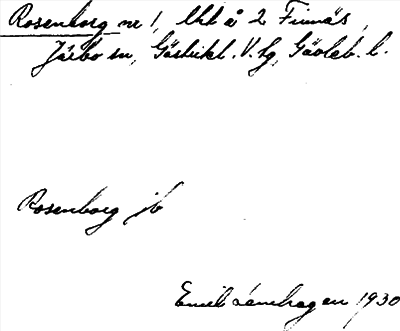 Rosenborg nr 1, lht å 2 Finnäs,
Järbo sn, Gästrikl. V. tg, Gävleb. l.
Rosenborg jb
Emil Lanhagen 1930